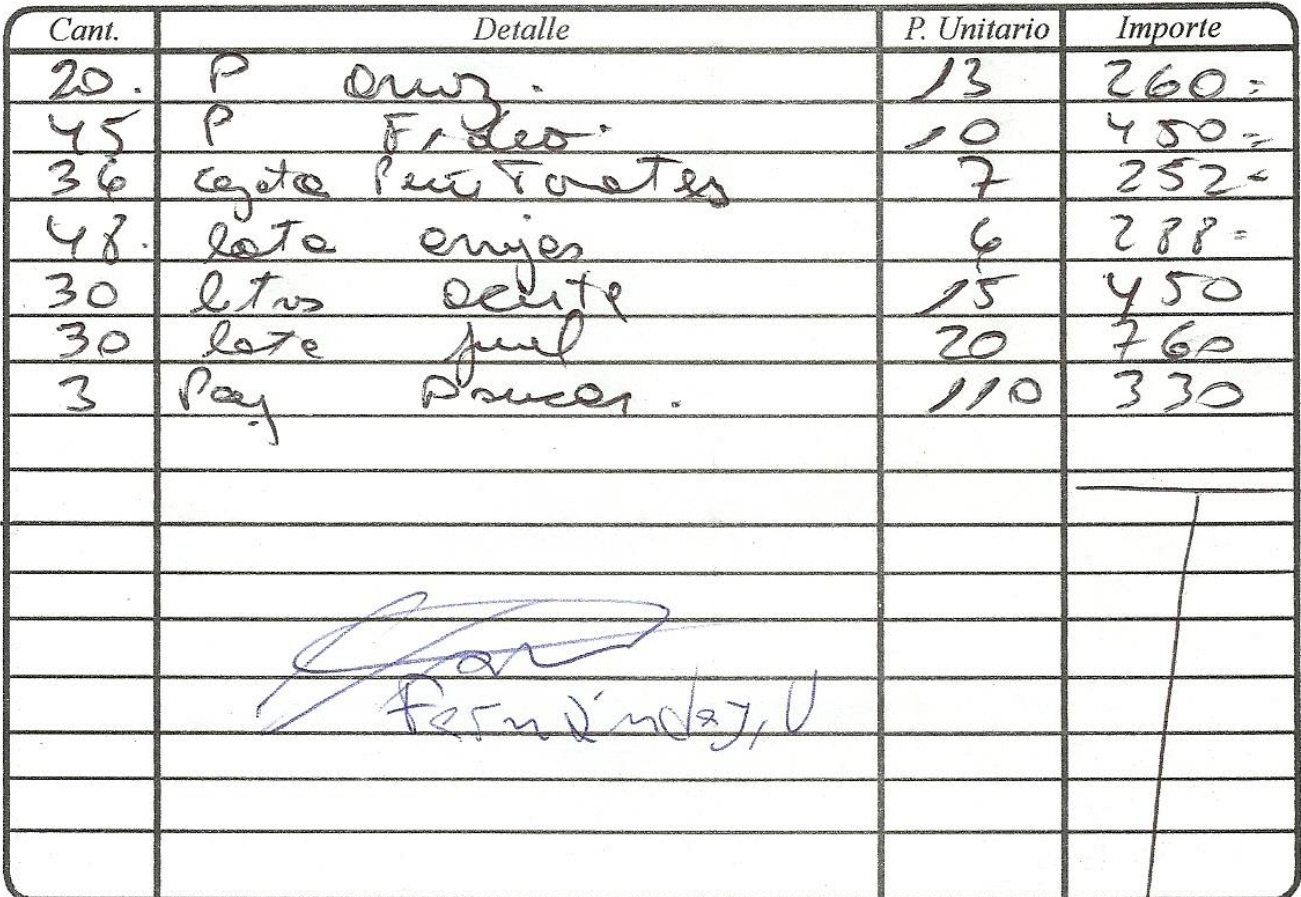 Cant. Detalle P. Unitario Importe
20. P Arroz. 13 260=
45 P Fideo. 10 450=
36 cajeta Pure Tomates 7 252=
48. lata arvejas 6 288=
30 ltros aceite 15 450
30 lata jurel 20 760
3 Paq Asucar. 110 330
Fernández, V